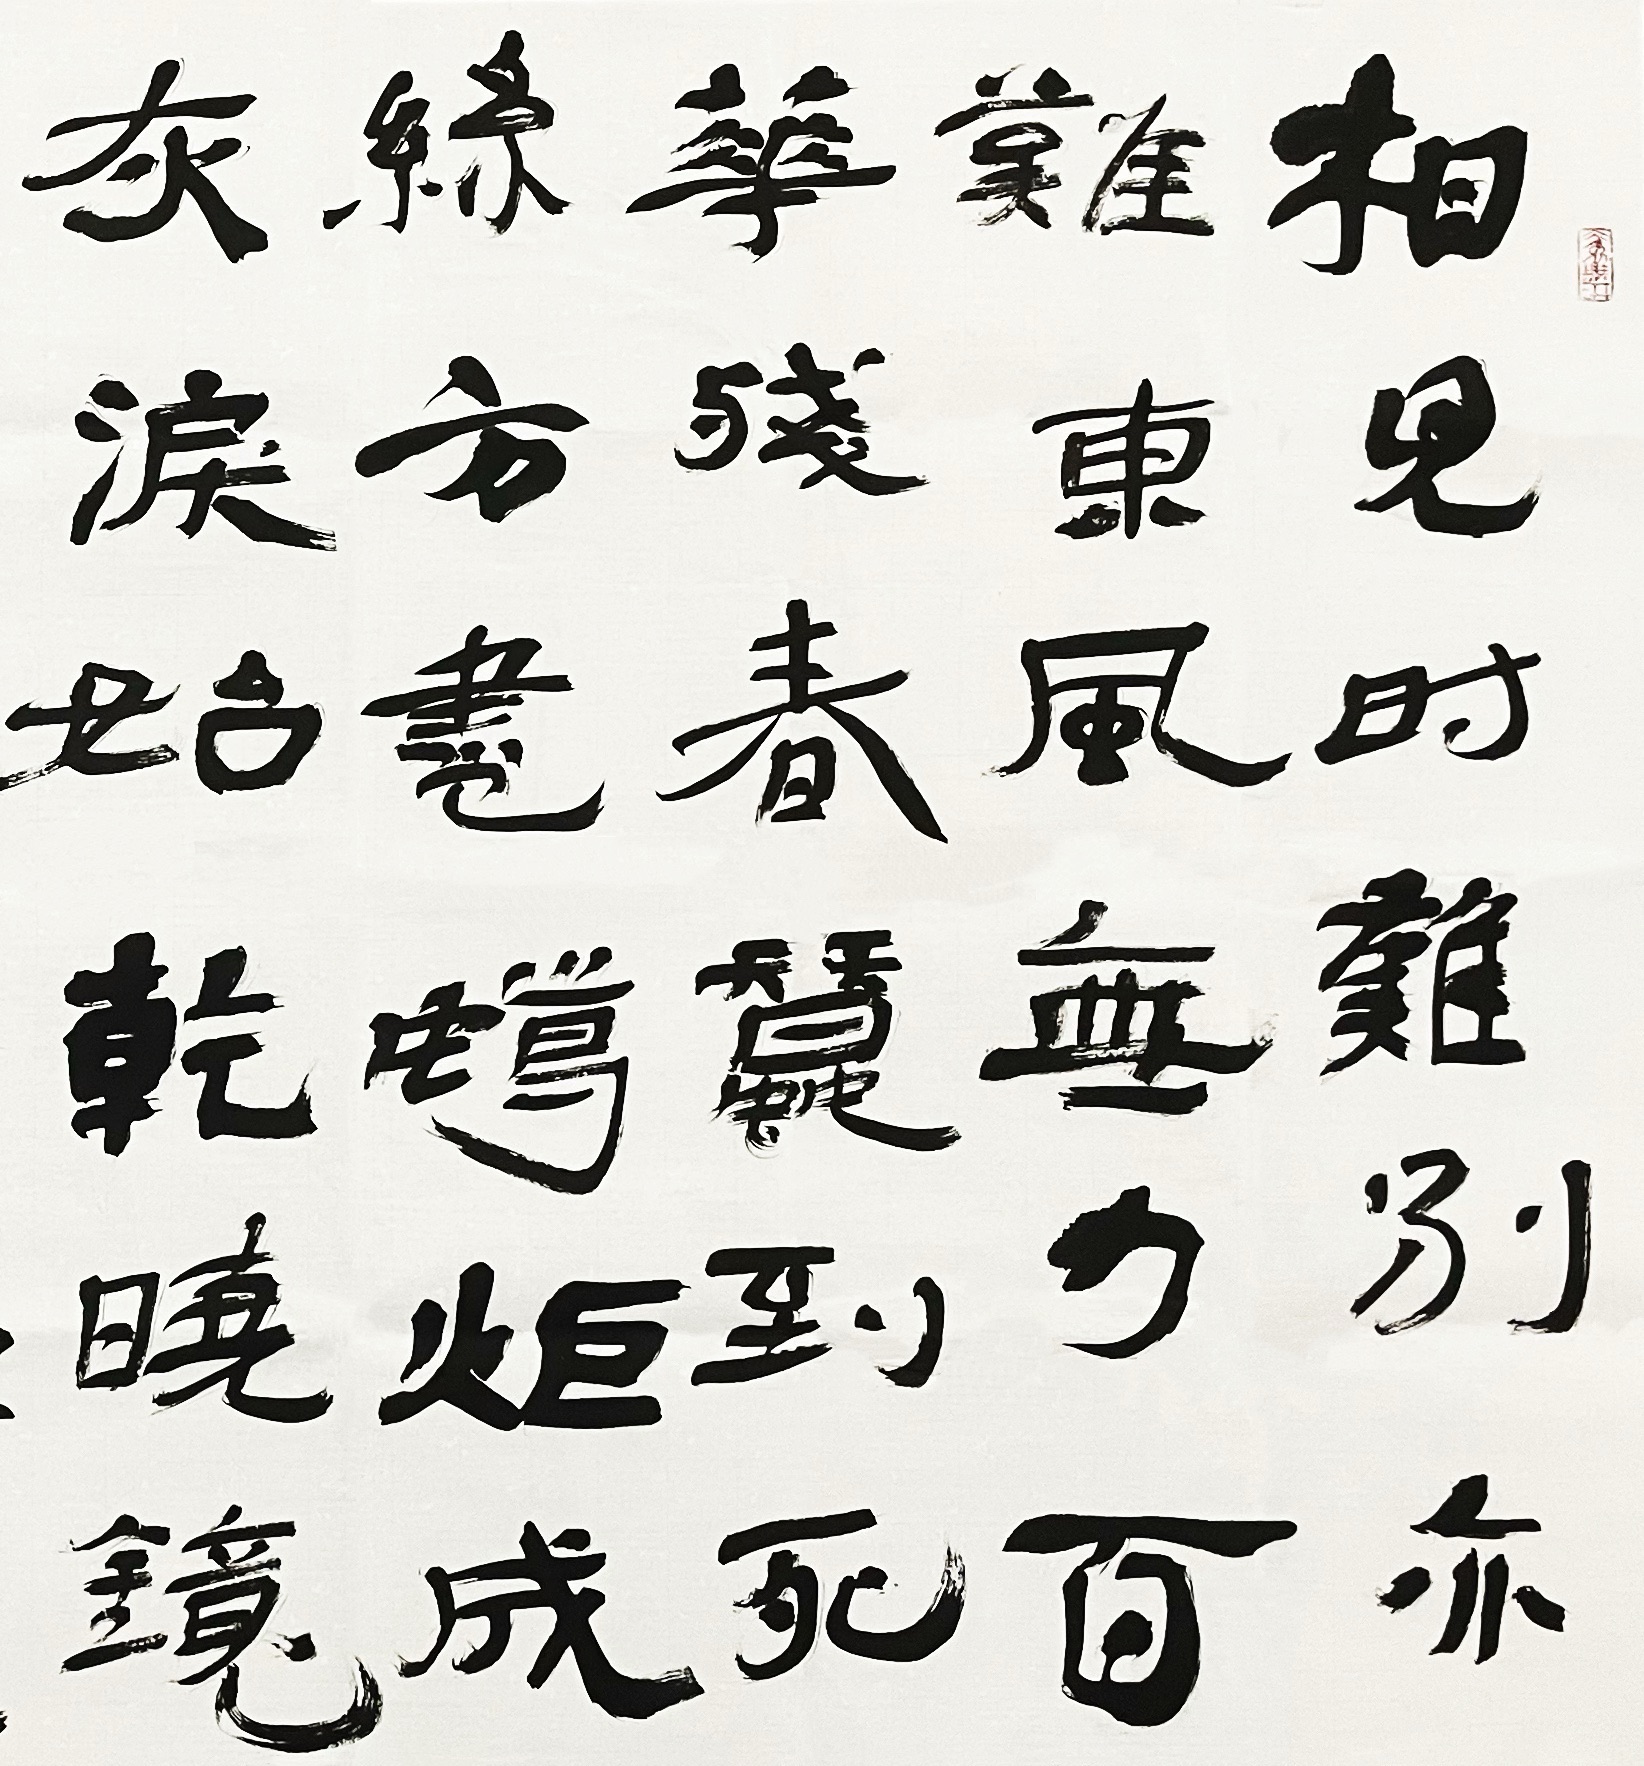 相見时難別亦
難東風無力百
華殘春蠶到死
絲方盡蠟炬成
灰淚始乾曉鏡